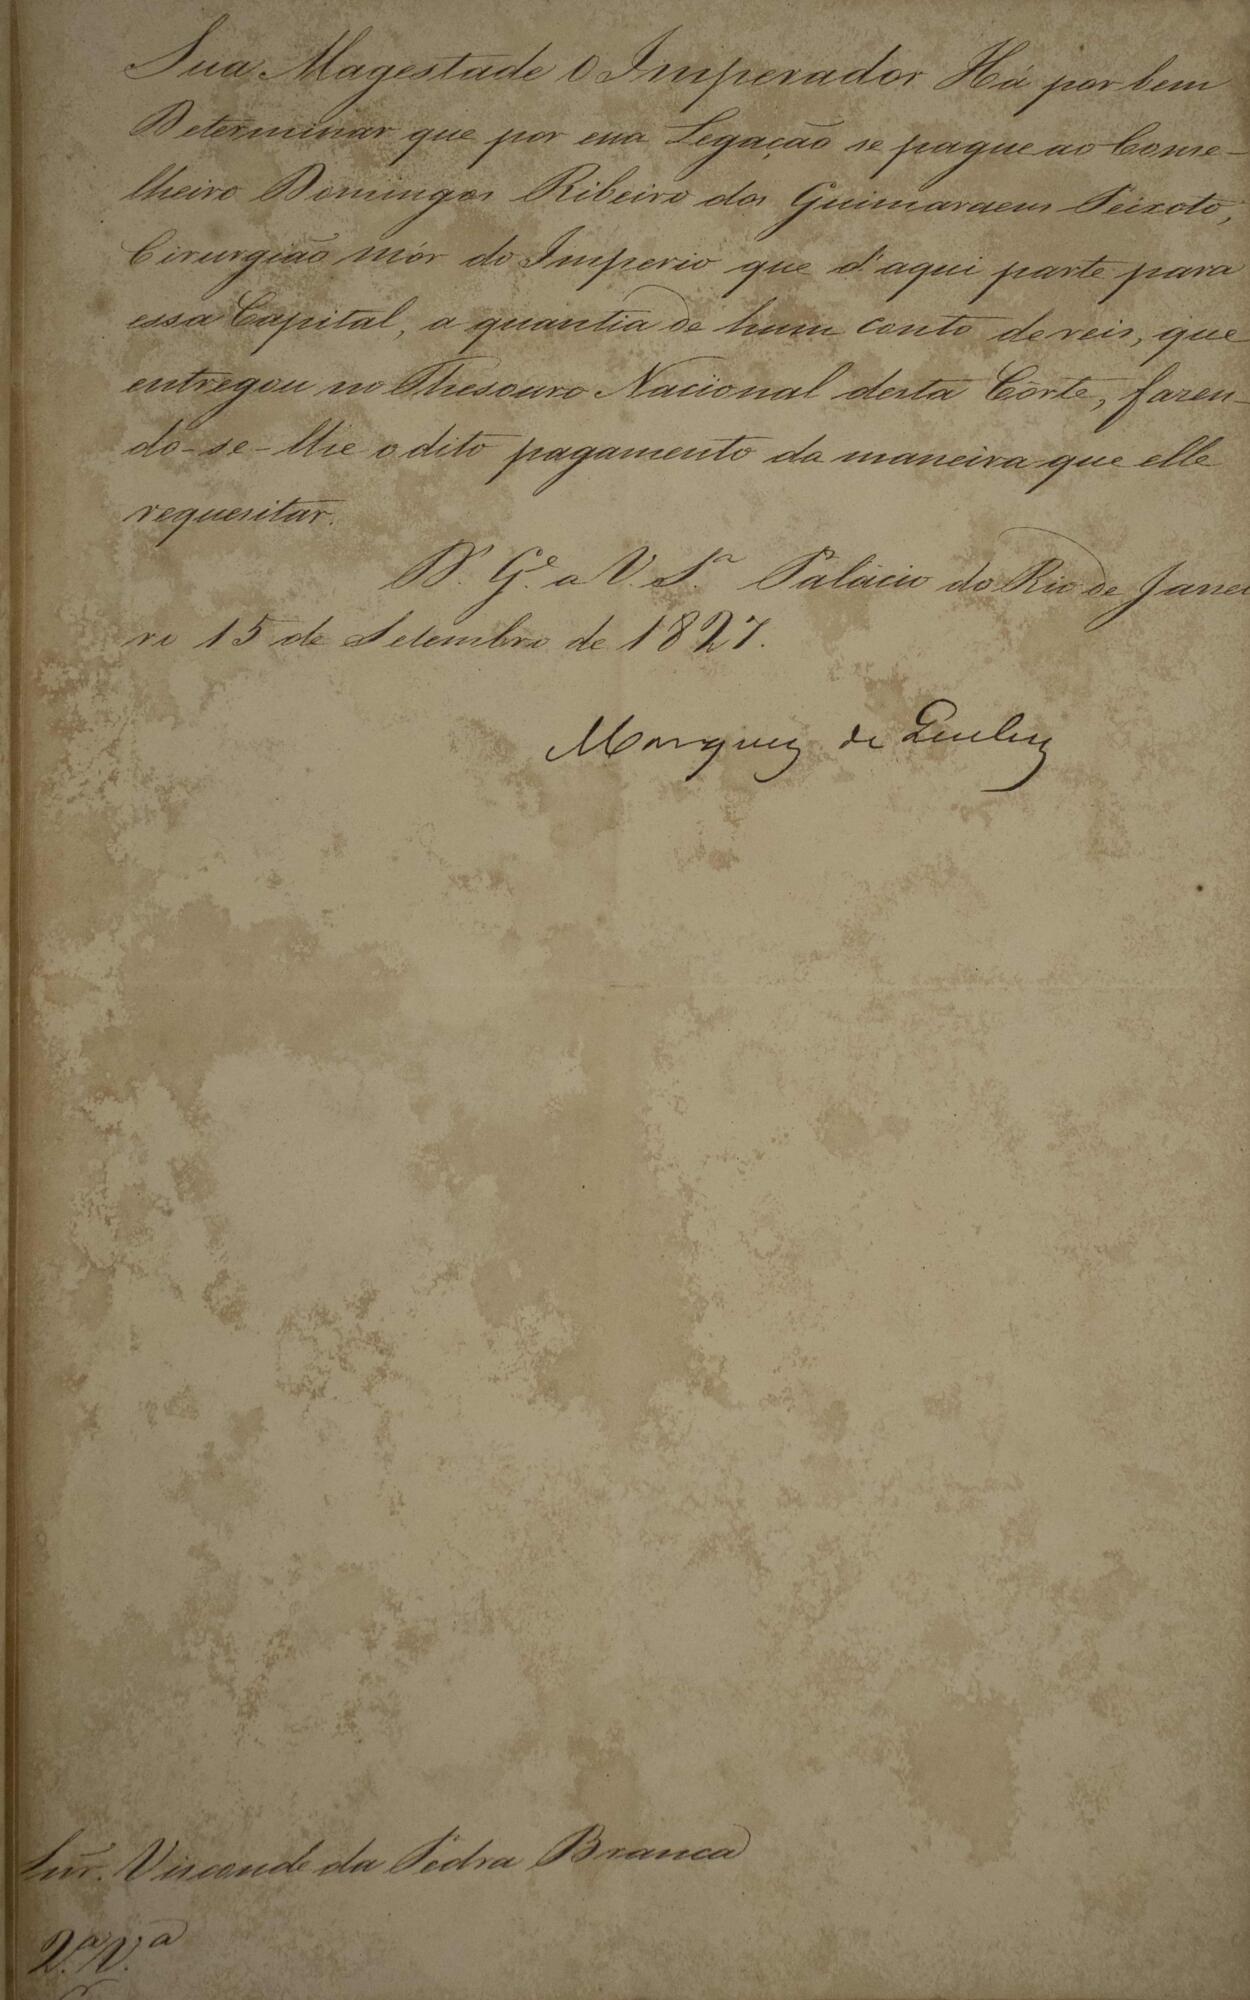 Sua Magestade O Imperador Há por bem
Determinar que por essa Legação se pague ao Conse-
lheiro Domingos Ribeiro dos Guimaraens Peixoto,
Cirurgião mór do Imperio que d'aqui parte para
essa Capital, a quantia de hum conto de reis, que
entregou no Thesouro Nacional desta Côrte, fazen-
do-se-lhe o dito pagamento da maneira que elle
requesitar.
D.s G.e a V. S.a Palacio do Rio de Janei
ro 15 de Setembro de 1827.
Marquez de Queluz
Snr. Visconde da Pedra Branca
2.a V.a